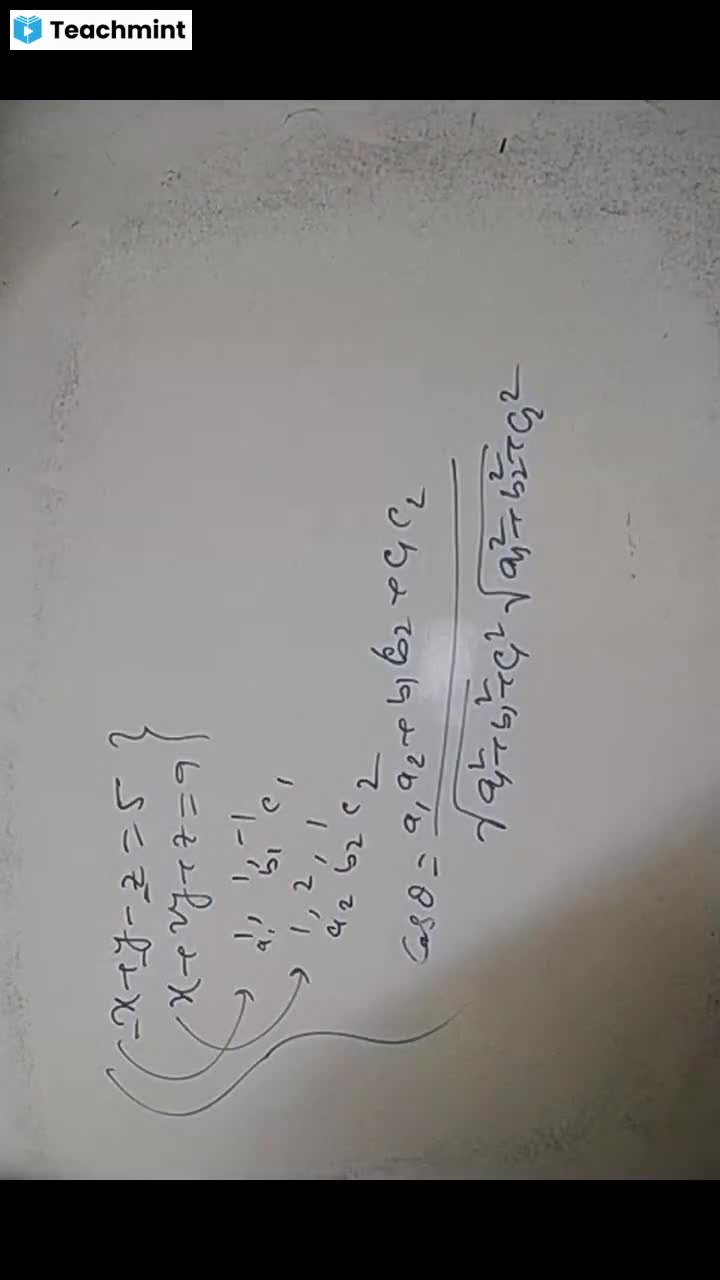 Teachmint
x + y - z = 5 }
x + 2y + z = 9
1, 1, -1
a1 b1 c1
1, 2, 1
a2 b2 c2
cos θ = a1a2 + b1b2 + c1c2
√a1² + b1² + c1² √a2² + b2² + c2²